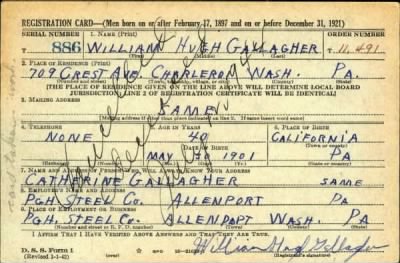 REGISTRATION CARD—(Men born on or after February 17, 1897 and on or before December 31, 1921)
SERIAL NUMBER 1. NAME (Print) ORDER NUMBER
886 WILLIAM HUGH GALLAGHER T 11,491
(First) (Middle) (Last)
2. PLACE OF RESIDENCE (Print)
709 CREST AVE. CHARLEROI WASH. PA.
(Number and street) (Town, township, village, or city) (County) (State)
[THE PLACE OF RESIDENCE GIVEN ON THE LINE ABOVE WILL DETERMINE LOCAL BOARD
JURISDICTION; LINE 2 OF REGISTRATION CERTIFICATE WILL BE IDENTICAL]
3. MAILING ADDRESS
SAME
4. TELEPHONE 5. AGE IN YEARS 6. PLACE OF BIRTH
NONE 40 CALIFORNIA
DATE OF BIRTH
MAY 1901 PA
7. NAME AND ADDRESS OF PERSON WHO WILL ALWAYS KNOW YOUR ADDRESS
CATHERINE GALLAGHER SAME
8. EMPLOYER'S NAME AND ADDRESS
PGH. STEEL Co. ALLENPORT PA
9. PLACE OF EMPLOYMENT OR BUSINESS
PGH. STEEL Co. ALLENPORT WASH. PA
(Number and street or R. F. D. number) (Town) (County) (State)
I AFFIRM THAT I HAVE VERIFIED ABOVE ANSWERS AND THAT THEY ARE TRUE.
D. S. S. Form 1
(Revised 1-1-42) (Registrant's signature)
William Hugh Gallagher